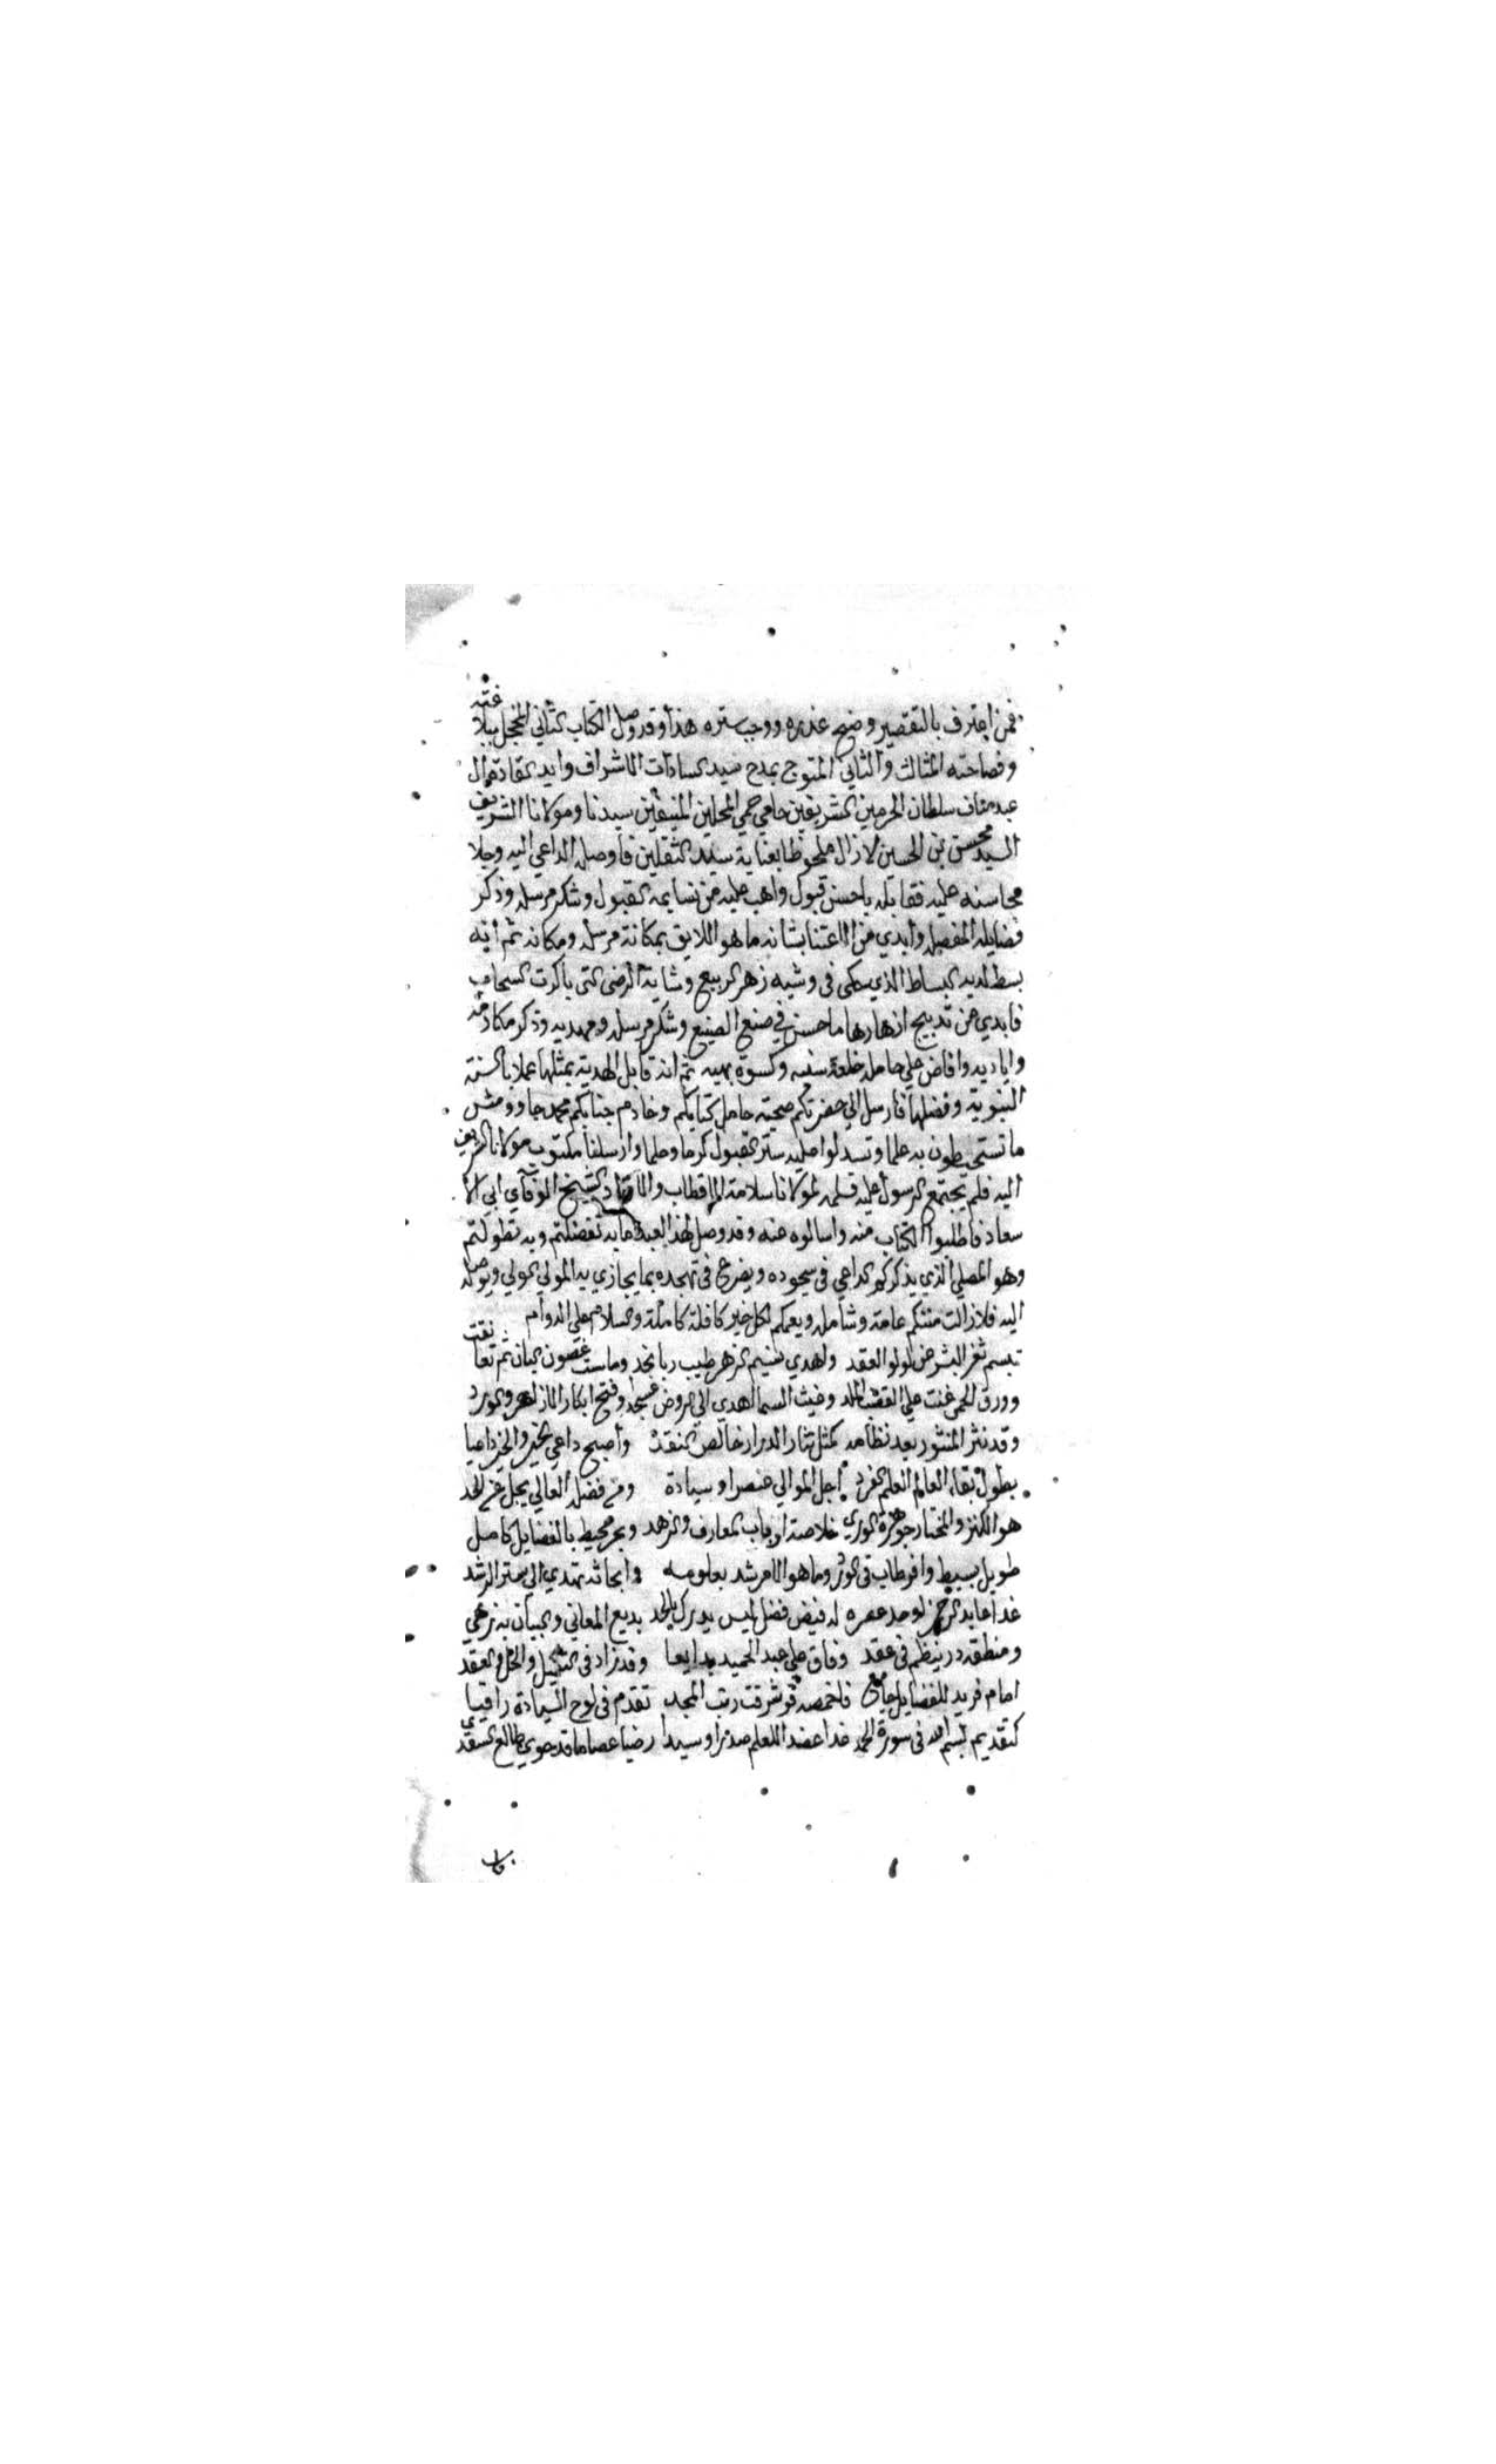 فمن اعترف بالتقصير وضح عذره ووجب ستره هذا وقد وصل الكتاب الثاني المخجل ببلاغته
وفصاحته المثالث والثاني المتوج بمدح سيد السادات الاشراف وايد القادة من ال
عبد مناف سلطان الحرمين الشريفين حامي حمي المحلين المنيفين سيدنا ومولانا الشريف
السيد محسن بن الحسين لازال ملحوظا بعناية سيد الثقلين فاوصله الداعي اليه وجلا
محاسنه عليه فقابله باحسن قبول واهب عليه من نسايمه القبول وشكر مرسله وذكر
فضايله المفصله وابدي من الاعتنا بشانه ما هو اللايق بمكانة مرسله ومكانه ثم انه
بسط لديه البساط الذي حكى في وشيه زهر الربيع وشابه الرضى التي باكرت السحاب
فابدي من تدبيج ازهارها ما حسن في صنع الصنيع وشكر مرسله ومهديه وذكر مكارمه
واياديه وافاض علي حامله خلعة سنيه وكسوة بهيه ثم انه قابل الهدية بمثلها عملا بالسنة
النبوية وفضلها فارسل الي حضرتكم صحبة حامل كتابكم وخادم جنابكم محمد جاوومش
ما تستحيطون به علما وتسدلوا عليه ستر القبول كرما وحلما وارسلنا مكتوب مولانا الشريف
اليه فلم يجتمع الرسول عليه فسلمه لمولانا سلامة الاقطاب والاوتاد الشيخ الوفآي ابي الا
سعاد فاطلبوا الكتاب منه واسالوه عنه وقد وصل لهذا العبد ما به تفضلتم وبه تطولتم
وهو المصلي الذي يذكركم الداعي في سجوده ويضرع في تهجده بما يجازي به المولي المولي ويوصله
اليه فلا زالت مننكم عامة وشامله ويعمكم لكل خير كافلة كاملة والسلام علي الدوام
تبسم ثغر البشر عن لولو العقد واهدي نسيم الزهر طيب ربا نجد وماست غصون البان ثم تعانقت
وورق الحمى غنت علي القضب الملد وغيث السما اهدي الي الروض عسجدا وفتح ابكار الازاهر والورد
وقد نثر المنثور بعد نظامه كمثل نثار الدرار خالص النقد واصبح داعي الخير والخير داعيا
بطول بقاء العالم العلم الفرد اجل الموالي عنصرا وسيادة ومن فضله العالي يجل عن الحد
هو الكنز والمختار جوهرة الوري خلاصة ارباب المعارف والزهد وبحر محيط بالفضايل كامل
طويل بسيط وافر طاب في الورد وما هو الا مرشد بعلومه وابحاثه تهدي الي سنن الرشد
غدا عابد الرحمن اوحد عصره له فيض فضل ليس يدرك بالجد بديع المعاني والبيان به زهي
ومنطقه در ينظم في عقد وفاق علي عبد الحميد بدايعا وقد زاد في التسجيل والحل والعقد
امام فريد للفضايل جامع فاخمصه قد شرفت رتب المجد تقدم في لوح السيادة راقيا
كتقديم بسم الله في سورة الحمد غدا عضد للعلم صدرا وسيدا رضيا عصاما قد حوي طالع السعد